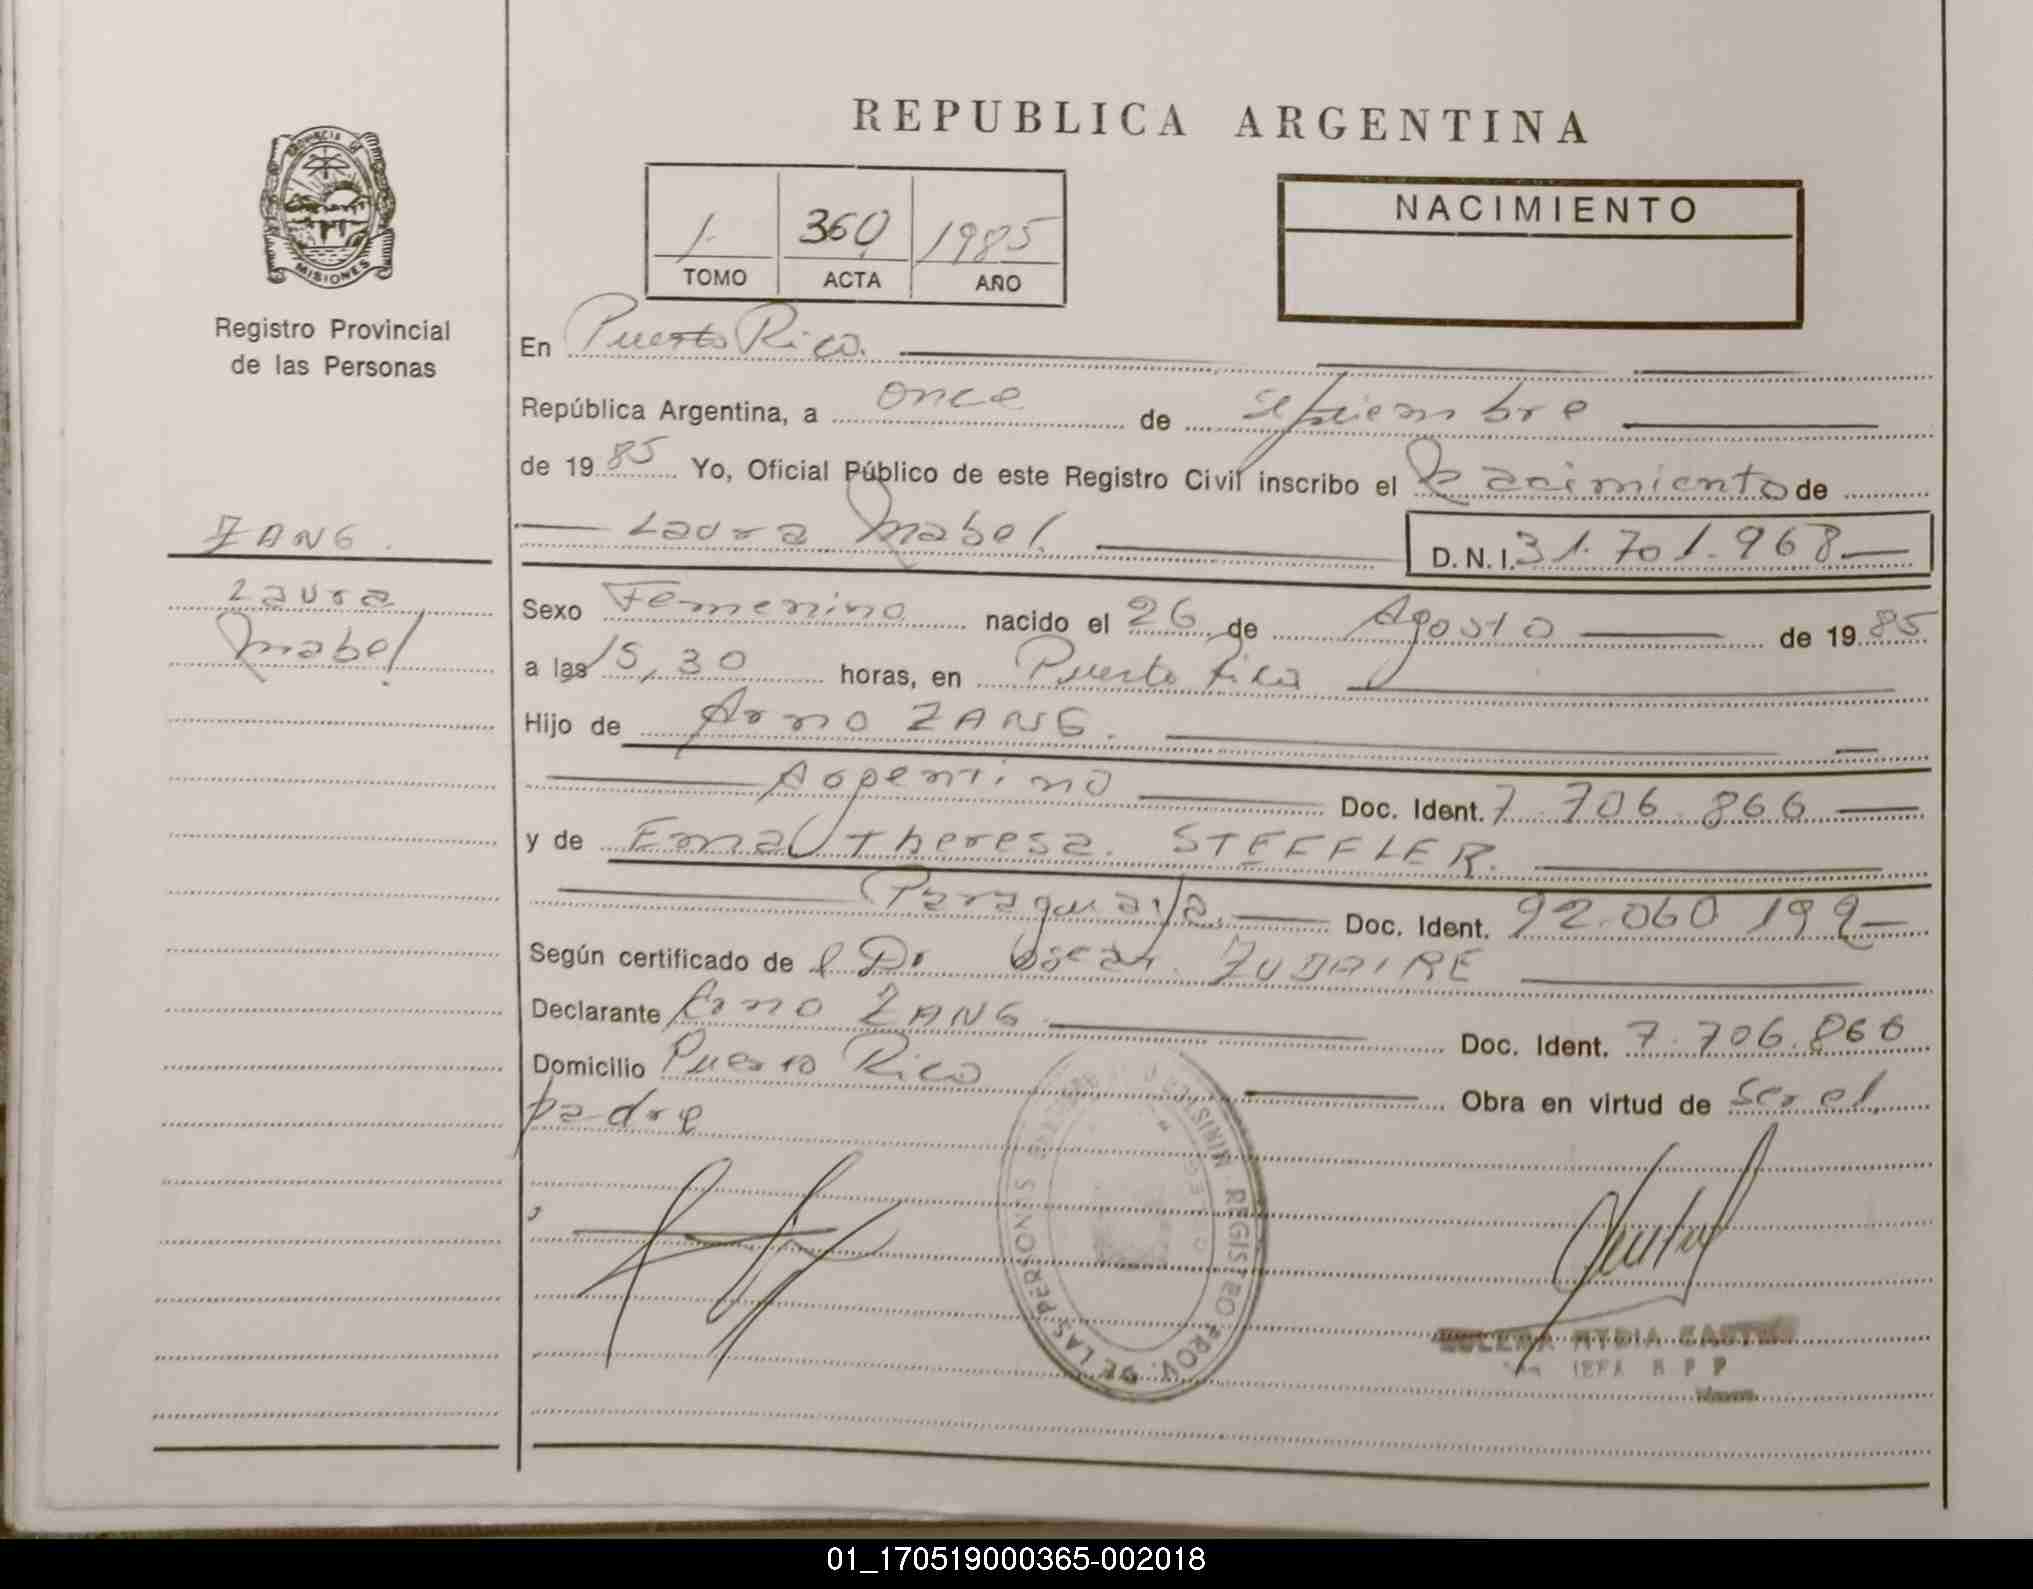 REPUBLICA ARGENTINA
PROVINCIA DE
MISIONES
Registro Provincial
de las Personas
1 360 1985
TOMO ACTA AÑO
NACIMIENTO
En Puerto Rico.
República Argentina, a once de septiembre
de 1985 Yo, Oficial Público de este Registro Civil inscribo el Nacimiento de
Laura Mabel. D.N.I. 31.701.968
ZANG.
Laura
Mabel
Sexo Femenino nacido el 26 de Agosto de 1985
a las 15,30 horas, en Puerto Rico
Hijo de Arno ZANG.
Argentino Doc. Ident. 7.706.866
y de Ema Theresa. STEFFLER.
Paraguaya. Doc. Ident. 92.060.199
Según certificado de l Dr Oscar. ZUDAIRE
Declarante Arno ZANG Doc. Ident. 7.706.866
Domicilio Puerto Rico Obra en virtud de ser el
padre
REGISTRO PROV. DE LAS PERSONAS
01_170519000365-002018